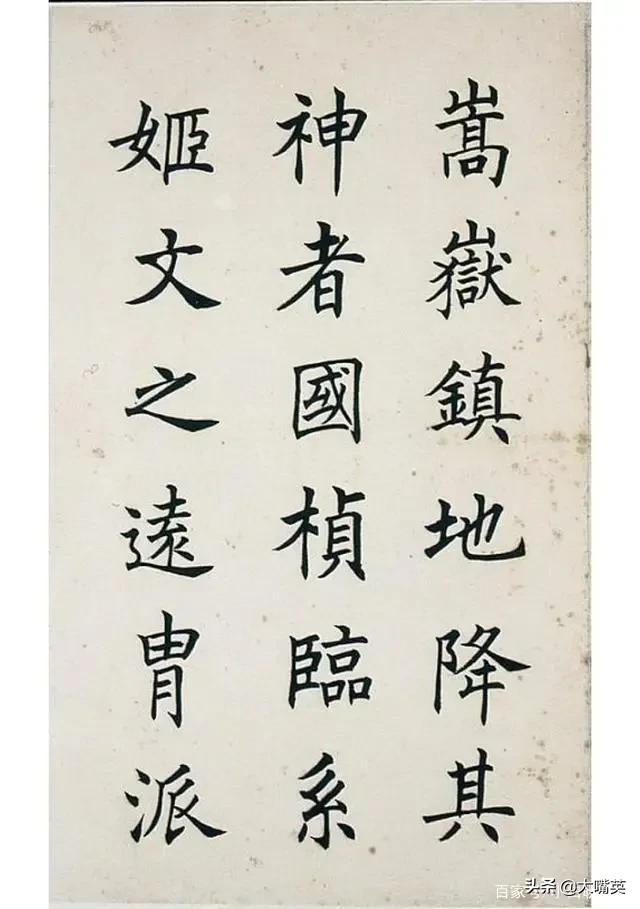 嵩嶽鎮地降其
神者國楨臨系
姬文之遠胄派
头条 @大嘴英